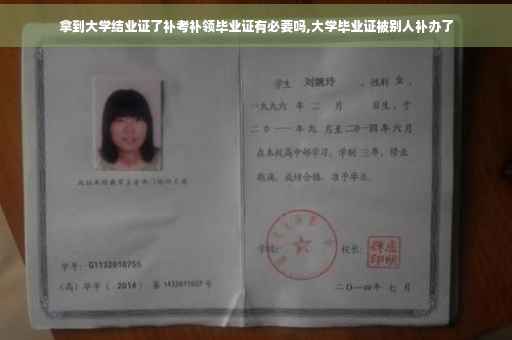 拿到大学结业证了补考补领毕业证有必要吗,大学毕业证被别人补办了
学生 刘婉玲 ,性别 女 ,
一九九六 年 二 月 日生,于
二〇一一年九 月至二〇一四年六月
在本校高中部学习,学制 三年,修业
期满,成绩合格,准予毕业。
学校: 校长:
学号: G1132010755
(高)毕字( 2014 )第 1432011607 号
二〇一四年 七 月